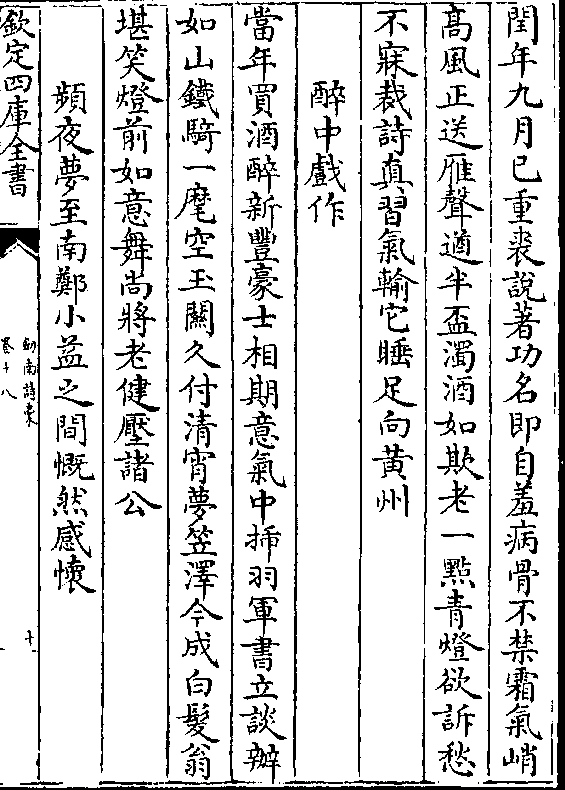 閏年九月已重裘說著功名即自羞病骨不禁霜氣峭
高風正送雁聲遒半盃濁酒如欺老一點青燈欲訴愁
不寐裁詩真習氣輸它睡足向黄州
醉中戲作
當年買酒醉新豐豪士相期意氣中揷羽軍書立談辦
如山鐵騎一麾空玉關久付清宵夢笠澤今成白髮翁
堪笑燈前如意舞尚將老健壓諸公
頻夜夢至南鄭小益之間慨然感懷
欽定四庫全書
劍南詩稾
卷十八
十